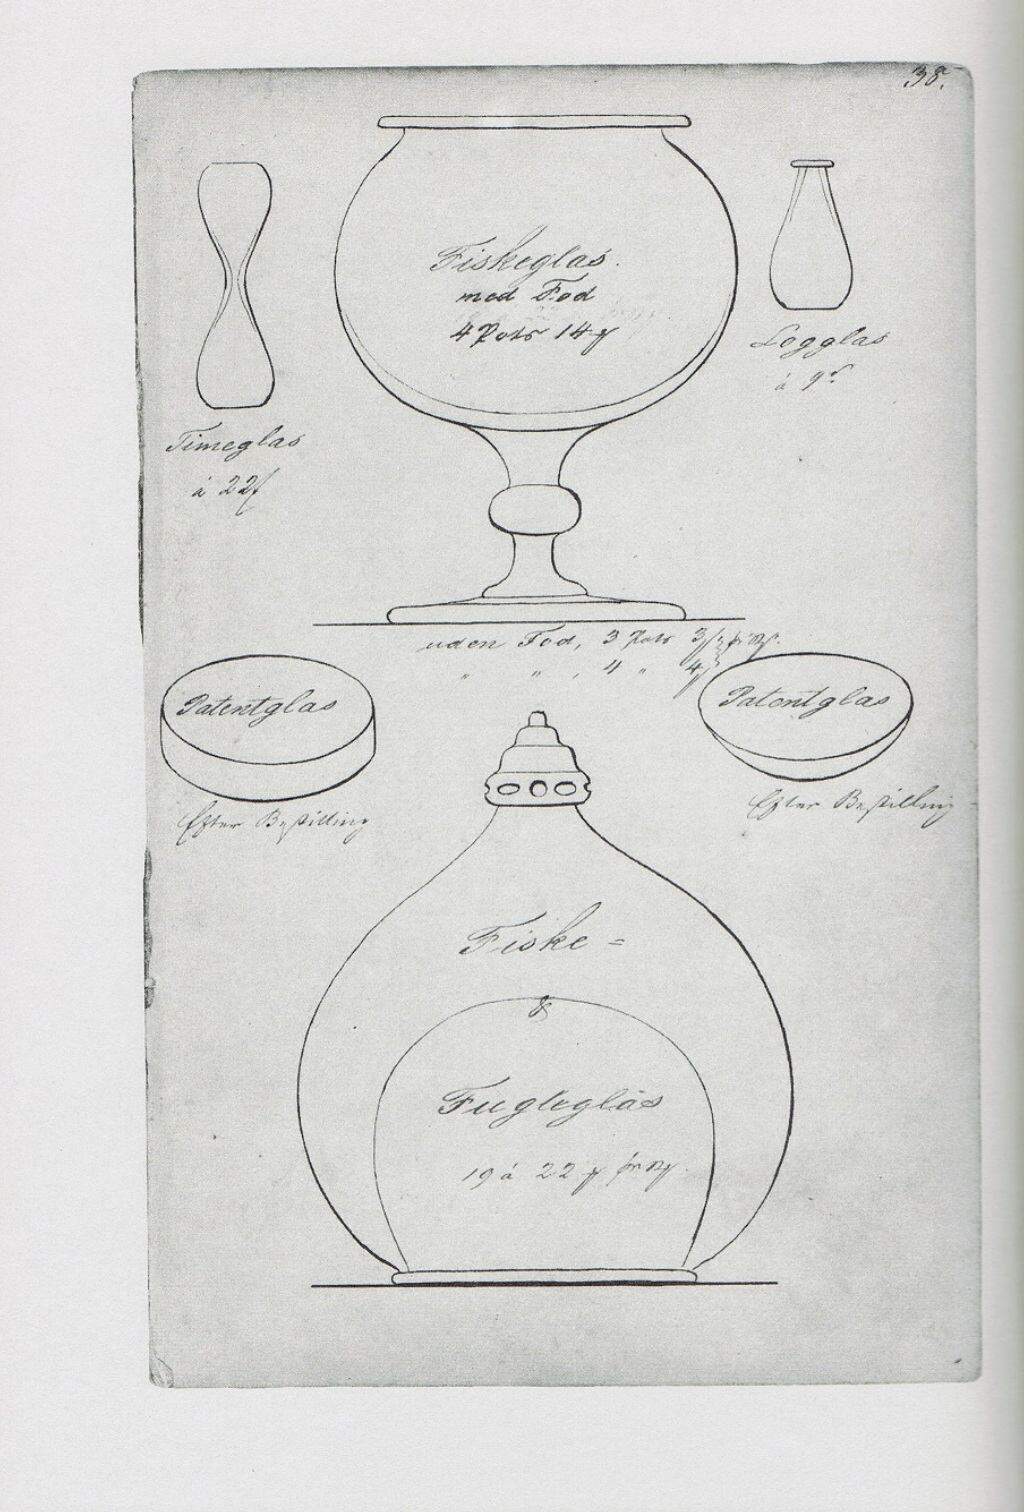 38.
Fiskeglas.
med Fod
4 Pots 14
Logglas
á 9
Timeglas
á 22
uden Fod, 3 Pots 3
" " , 4 " 4
Patentglas
Efter Bestilling
Patentglas
Efter Bestilling
Fiske =
&
Fugleglas
19 á 22